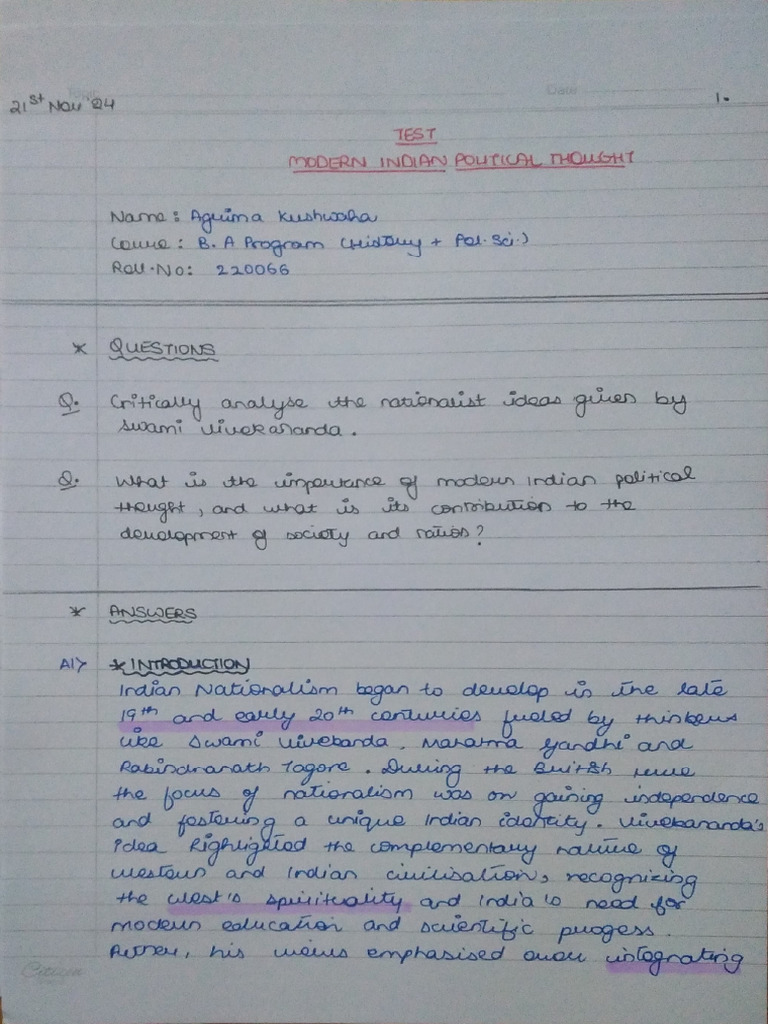 21st Nov '24
Date
1.
TEST
MODERN INDIAN POLITICAL THOUGHT
Name: Agrima Kushwaha
Course: B.A Program (History + Pol. Sci.)
Roll.No: 220066
* QUESTIONS
Q. Critically analyse the nationalist ideas given by
Swami Vivekananda.
Q. What is the importance of modern Indian political
thought, and what is its contribution to the
development of society and nation?
* ANSWERS
A1> * INTRODUCTION
Indian Nationalism began to develop in the late
19th and early 20th centuries fueled by thinkers
like Swami Vivekanda, Mahatma Gandhi and
Rabindranath Tagore. During the British rule
the focus of nationalism was on gaining independence
and fostering a unique Indian identity. Vivekananda's
idea highlighted the complementary nature of
western and Indian civilisation, recognizing
the West's spirituality and India's need for
modern education and scientific progress.
his views emphasised over integrating
Citizen